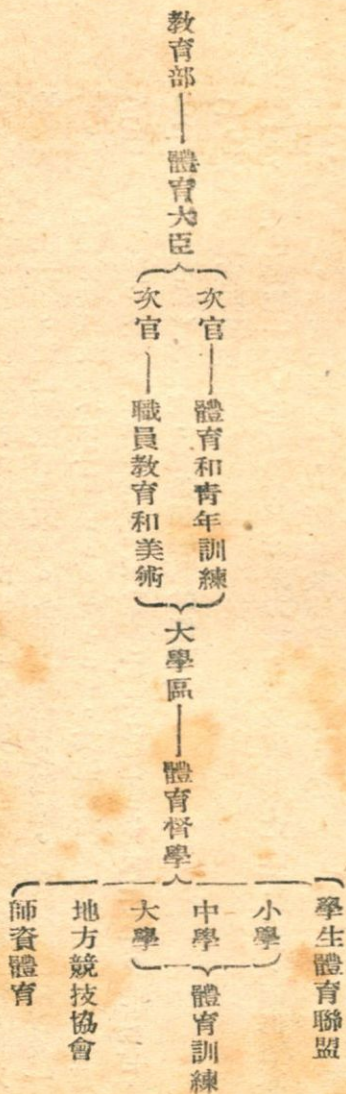 教育部——體育大臣
次官——體育和青年訓練
次官——職員教育和美術
大學區——體育督學
學生體育聯盟
小學
中學
大學
體育訓練
地方競技協會
師資體育